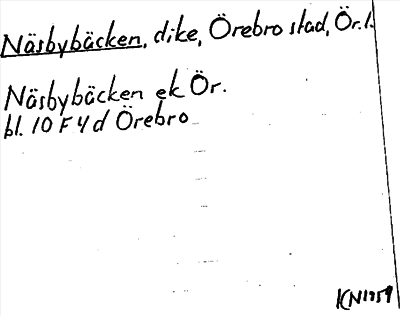 Näsbybäcken, dike, Örebro stad, Ör. l.
Näsbybäcken ek Ör.
bl. 10 F 4 d Örebro
KN 1959